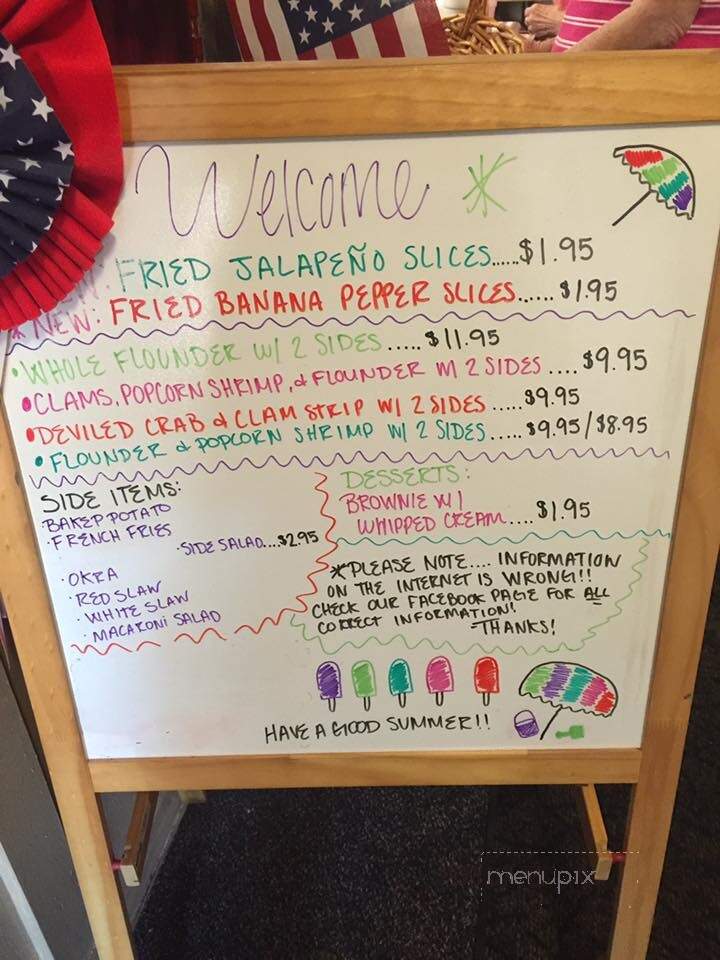 Welcome
FRIED JALAPEÑO SLICES......$1.95
* NEW: FRIED BANANA PEPPER SLICES...... $1.95
• WHOLE FLOUNDER W/ 2 SIDES ..... $11.95
• CLAMS, POPCORN SHRIMP, & FLOUNDER W/ 2 SIDES .... $9.95
• DEVILED CRAB & CLAM STRIP W/ 2 SIDES .....$9.95
• FLOUNDER & POPCORN SHRIMP W/ 2 SIDES..... $9.95/$8.95
SIDE ITEMS:
· BAKED POTATO
· FRENCH FRIES
· SIDE SALAD....$2.95
· OKRA
· RED SLAW
· WHITE SLAW
· MACARONI SALAD
DESSERTS:
BROWNIE W/
WHIPPED CREAM.... $1.95
* PLEASE NOTE.... INFORMATION
ON THE INTERNET IS WRONG!!
CHECK OUR FACEBOOK PAGE FOR ALL
CORRECT INFORMATION!
-THANKS!
HAVE A GOOD SUMMER!!
menupix